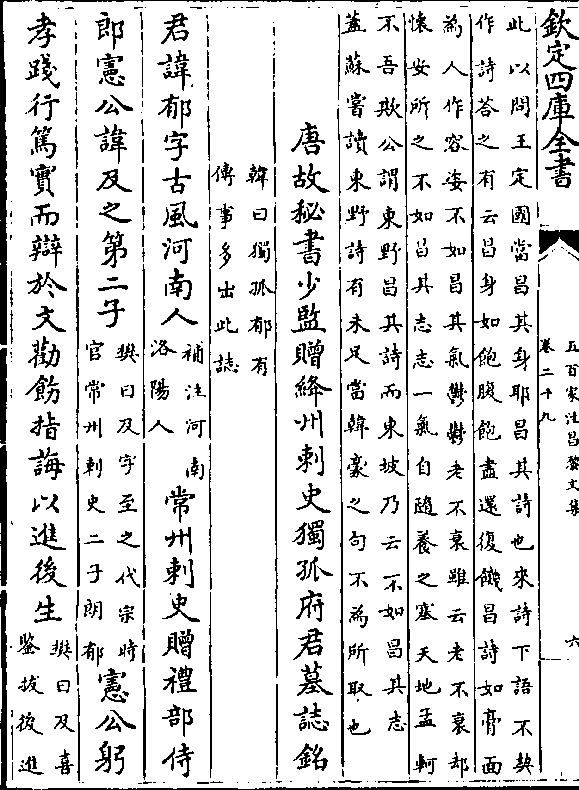 欽定四庫全書
五百家注昌黎文集
卷二十九
六
此以問王定國當昌其身耶昌其詩也來詩下語不契
作詩荅之有云昌身如飽腹飽盡還復饑昌詩如膏面
為人作容姿不如昌其氣鬱鬱老不衰雖云老不衰却
懷安所之不如昌其志志一氣自隨養之塞天地孟軻
不吾欺公謂東野昌其詩而東坡乃云不如昌其志
蓋蘇嘗讀東野詩有未足當韓豪之句不為所取也
唐故秘書少監贈絳州刺史獨孤府君墓誌銘
韓曰獨孤郁有
傳事多出此誌
君諱郁字古風河南人
補注河南
洛陽人
常州刺史贈禮部侍
郎憲公諱及之第二子
樊曰及字至之代宗時
官常州刺史二子朗郁
憲公躬
孝踐行篤實而辯於文勸飭指誨以進後生
樊曰及喜
鑒拔後進